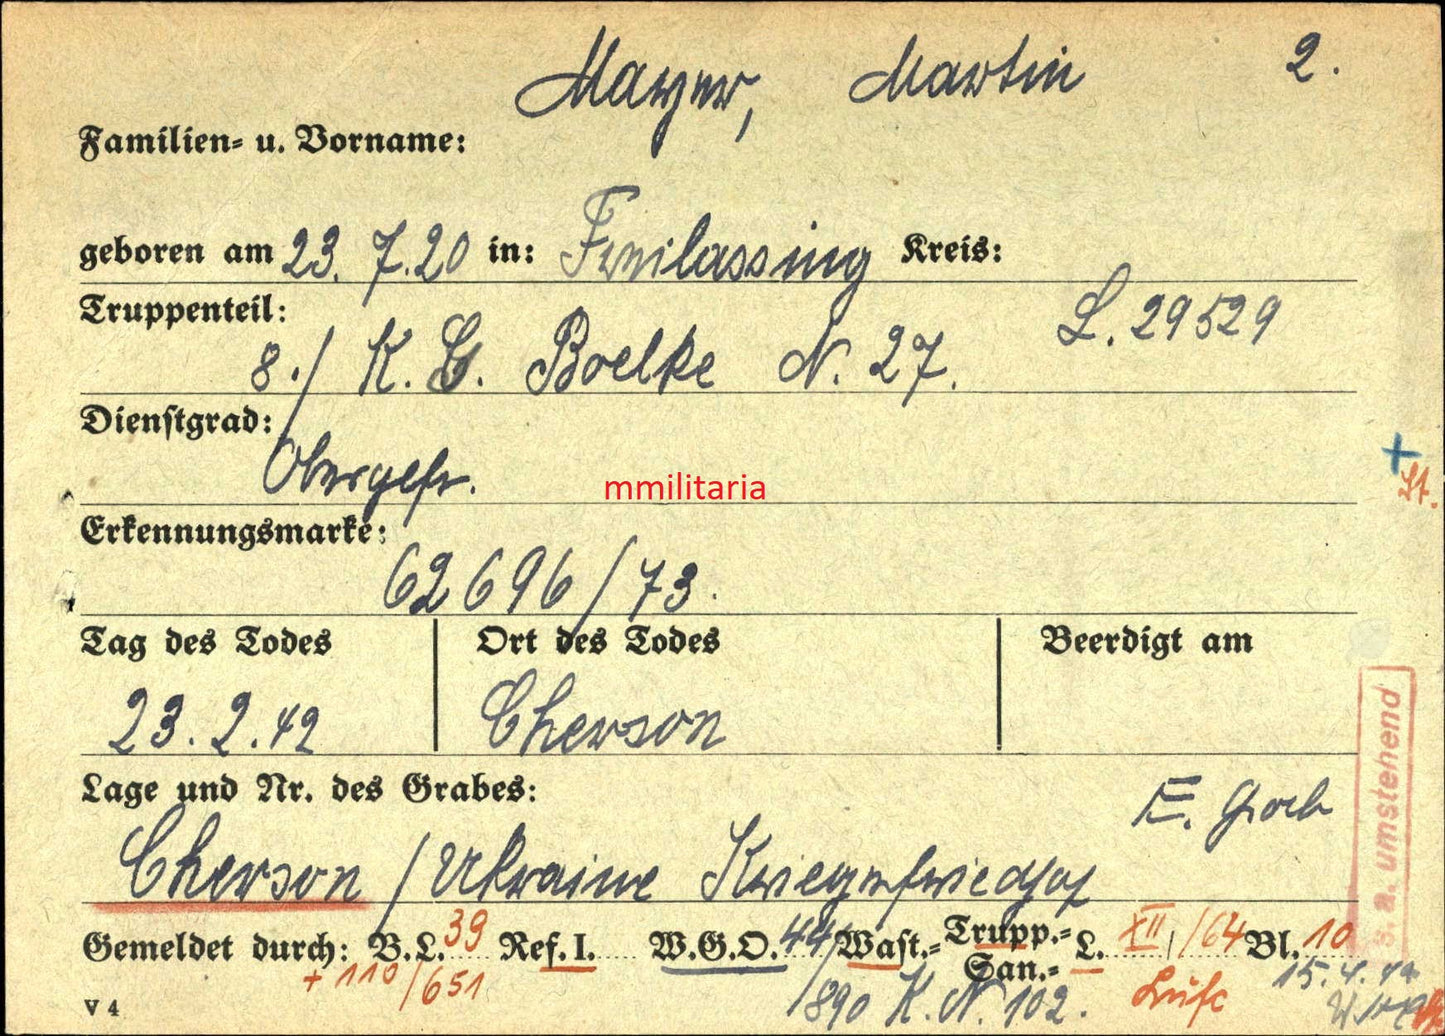 Mayer, Martin 2.
Familien- u. Vorname:
geboren am 23. 7. 20 in: Freilassing Kreis:
Truppenteil: L. 29529
8./ K. G. Boelke N. 27.
Dienstgrad:
Obergefr.
mmilitaria
+
Erkennungsmarke:
62696/73.
Tag des Todes Ort des Todes Beerdigt am
23. 2. 42 Cherson
Lage und Nr. des Grabes: E. Grab
Cherson / Ukraine Kriegerfriedhof
s. a. umstehend
Gemeldet durch: B.L. 39 Ref. I. W.G.O. 44/ Wast.- Trupp.- San.- L. XII /64 Bl. 10
+ 110/651 890 K. N. 102. 15. 4. 42
V 4